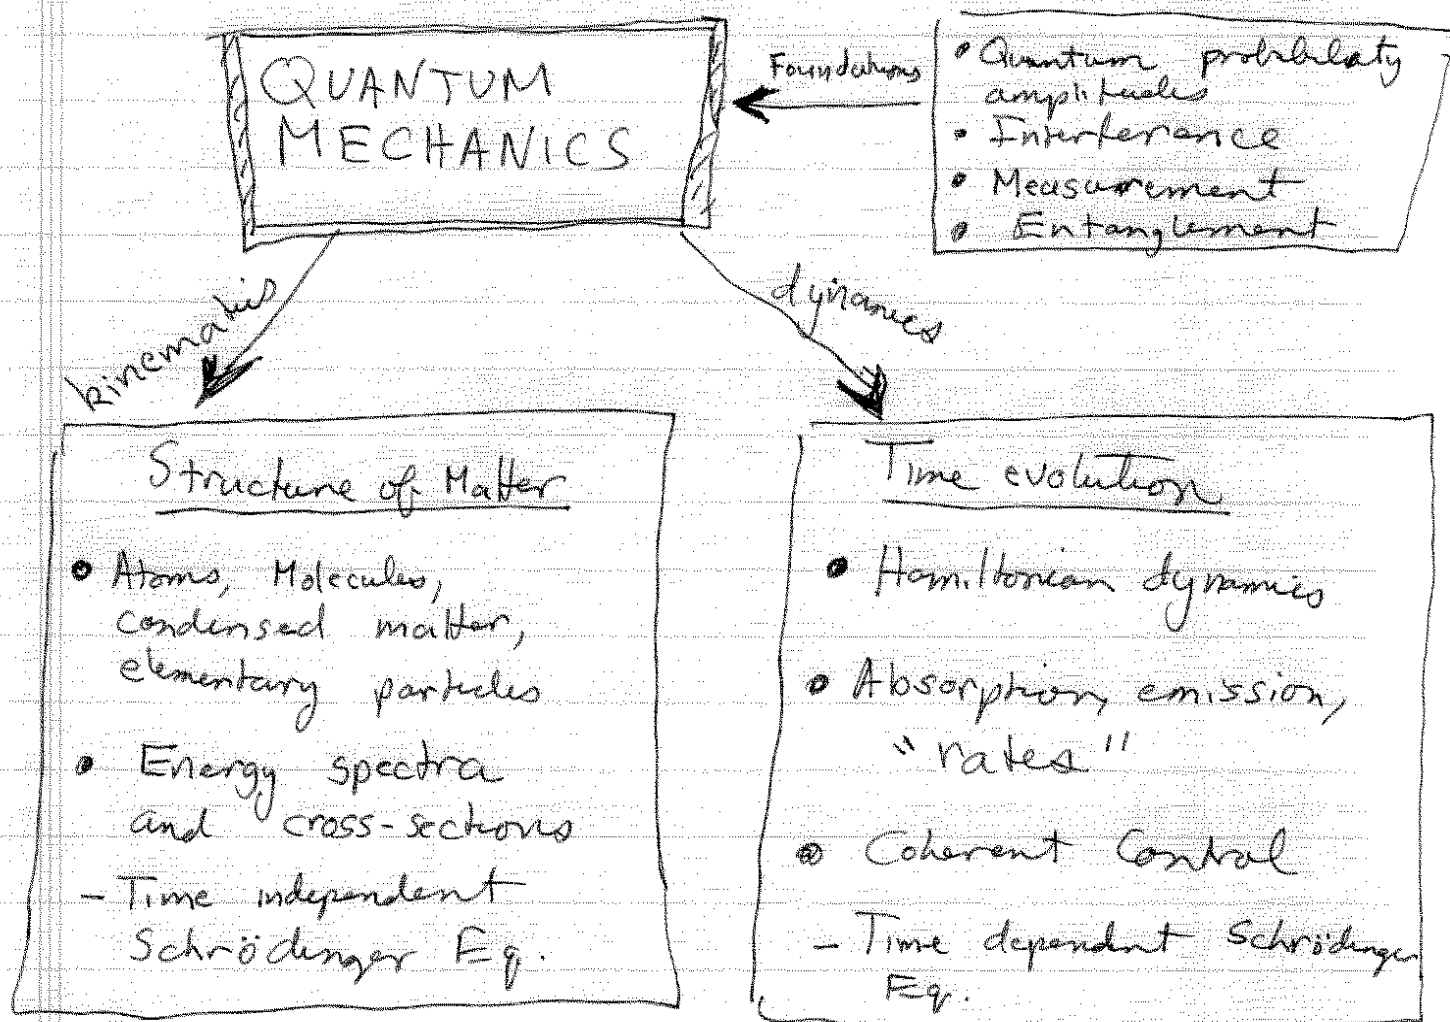 QUANTUM
MECHANICS
Foundations
• Quantum probability
amplitudes
• Interference
• Measurement
• Entanglement
kinematics
dynamics
Structure of Matter
• Atoms, Molecules,
condensed matter,
elementary particles
• Energy spectra
and cross-sections
- Time independent
Schrödinger Eq.
Time evolution
• Hamiltonian dynamics
• Absorption, emission,
"rates"
• Coherent Control
- Time dependent Schrödinger
Eq.